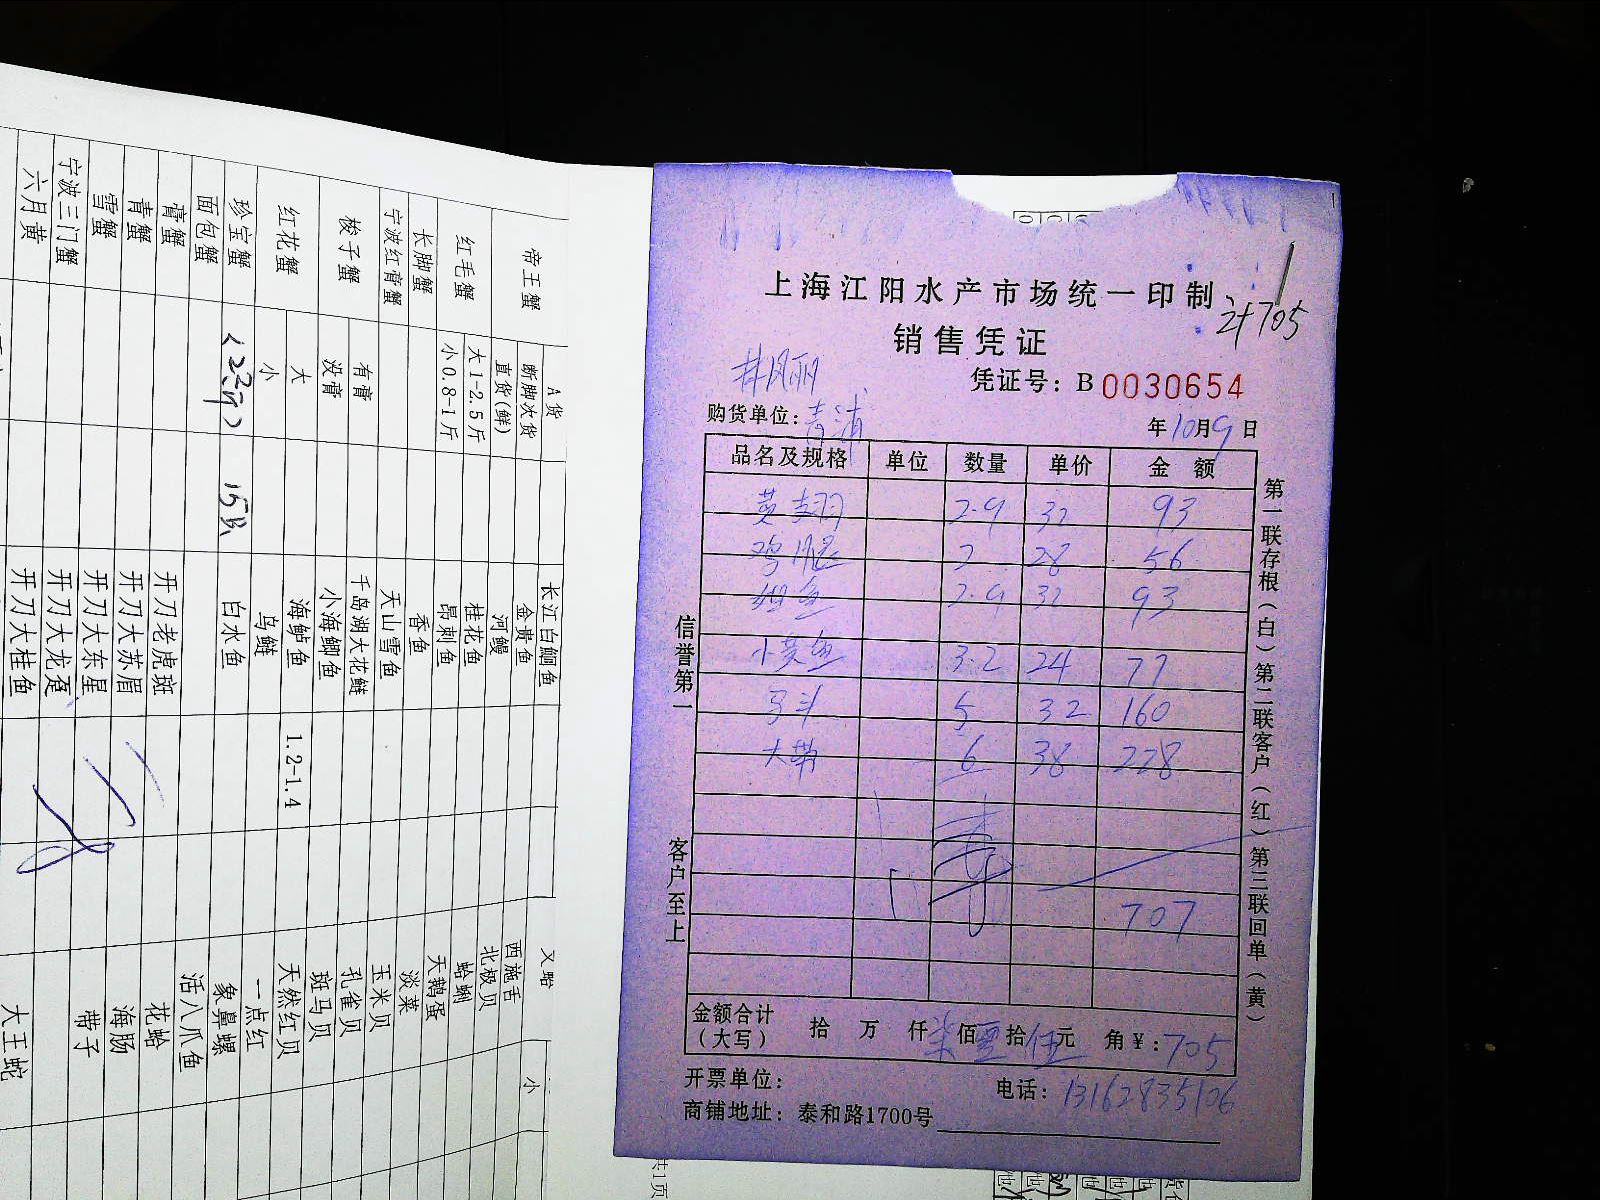 上海江阳水产市场统一印制
计705
销售凭证
凭证号：B 0030654
购货单位：青浦
年10月9日
品名及规格 单位 数量 单价 金额
黄翅 2.9 32 93
鸡腿 2 28 56
2.9 32 93
小黄鱼 3.2 24 77
马斗 5 32 160
大带 6 38 228
707
金额合计（大写） 拾 万 仟 柒佰零拾伍元 角 ¥：705
开票单位：
电话：13162835106
商铺地址：泰和路1700号
信誉第一
客户至上
第一联存根（白）第二联客户（红）第三联回单（黄）
A货
帝王蟹 断脚次货 长江白鮰鱼
直货(鲜) 金贵鱼 西施舌
红毛蟹 大1-2.5斤 河鳗 北极贝
小0.8-1斤 桂花鱼 蛤蜊
长脚蟹 昂刺鱼 天鹅蛋
宁波红膏蟹 香鱼 淡菜
梭子蟹 有膏 天山雪鱼 玉米贝
没膏 千岛湖大花鲢 孔雀贝
小海鲫鱼 斑马贝
红花蟹 大 海鲈鱼 1.2-1.4 天然红贝
小 乌鲢 一点红
珍宝蟹 (22斤) 15只 白水鱼 象鼻螺
面包蟹 活八爪鱼
膏蟹 开刀老虎斑 花蛤
青蟹 开刀大苏眉 海肠
雪蟹 开刀大东星 带子
宁波三门蟹 开刀大龙趸
六月黄 开刀大桂鱼 大王蛇
小
共1页